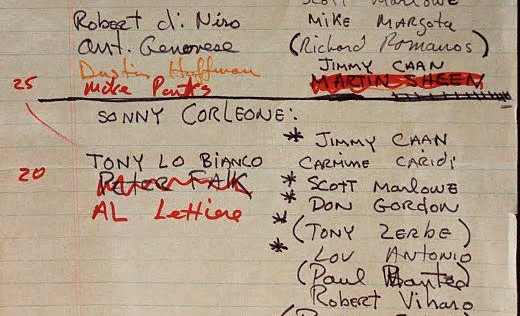 Scott Marlowe
Robert di Niro
Mike Margota
Ant. Genovese
(Richard Romanos)
Dustin Hoffman
Jimmy Chan
25
Mike
MARTIN SHEEN
SONNY CORLEONE:
* JIMMY CHAN
TONY LO BIANCO
CARMINE CARIDI
20
Peter FALK
* SCOTT MARLOWE
AL Lettiere
* DON GORDON
* (TONY ZERBE)
* LOU ANTONIO
(Paul
Robert Viharo